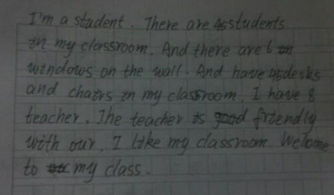 I'm a student. There are 45 students
in my classroom. And there are 6
windows on the wall. And have 45 desks
and chairs in my classroom, I have 8
teacher. The teacher is friendly
with our, I like my classroom. Welcome
to my class.